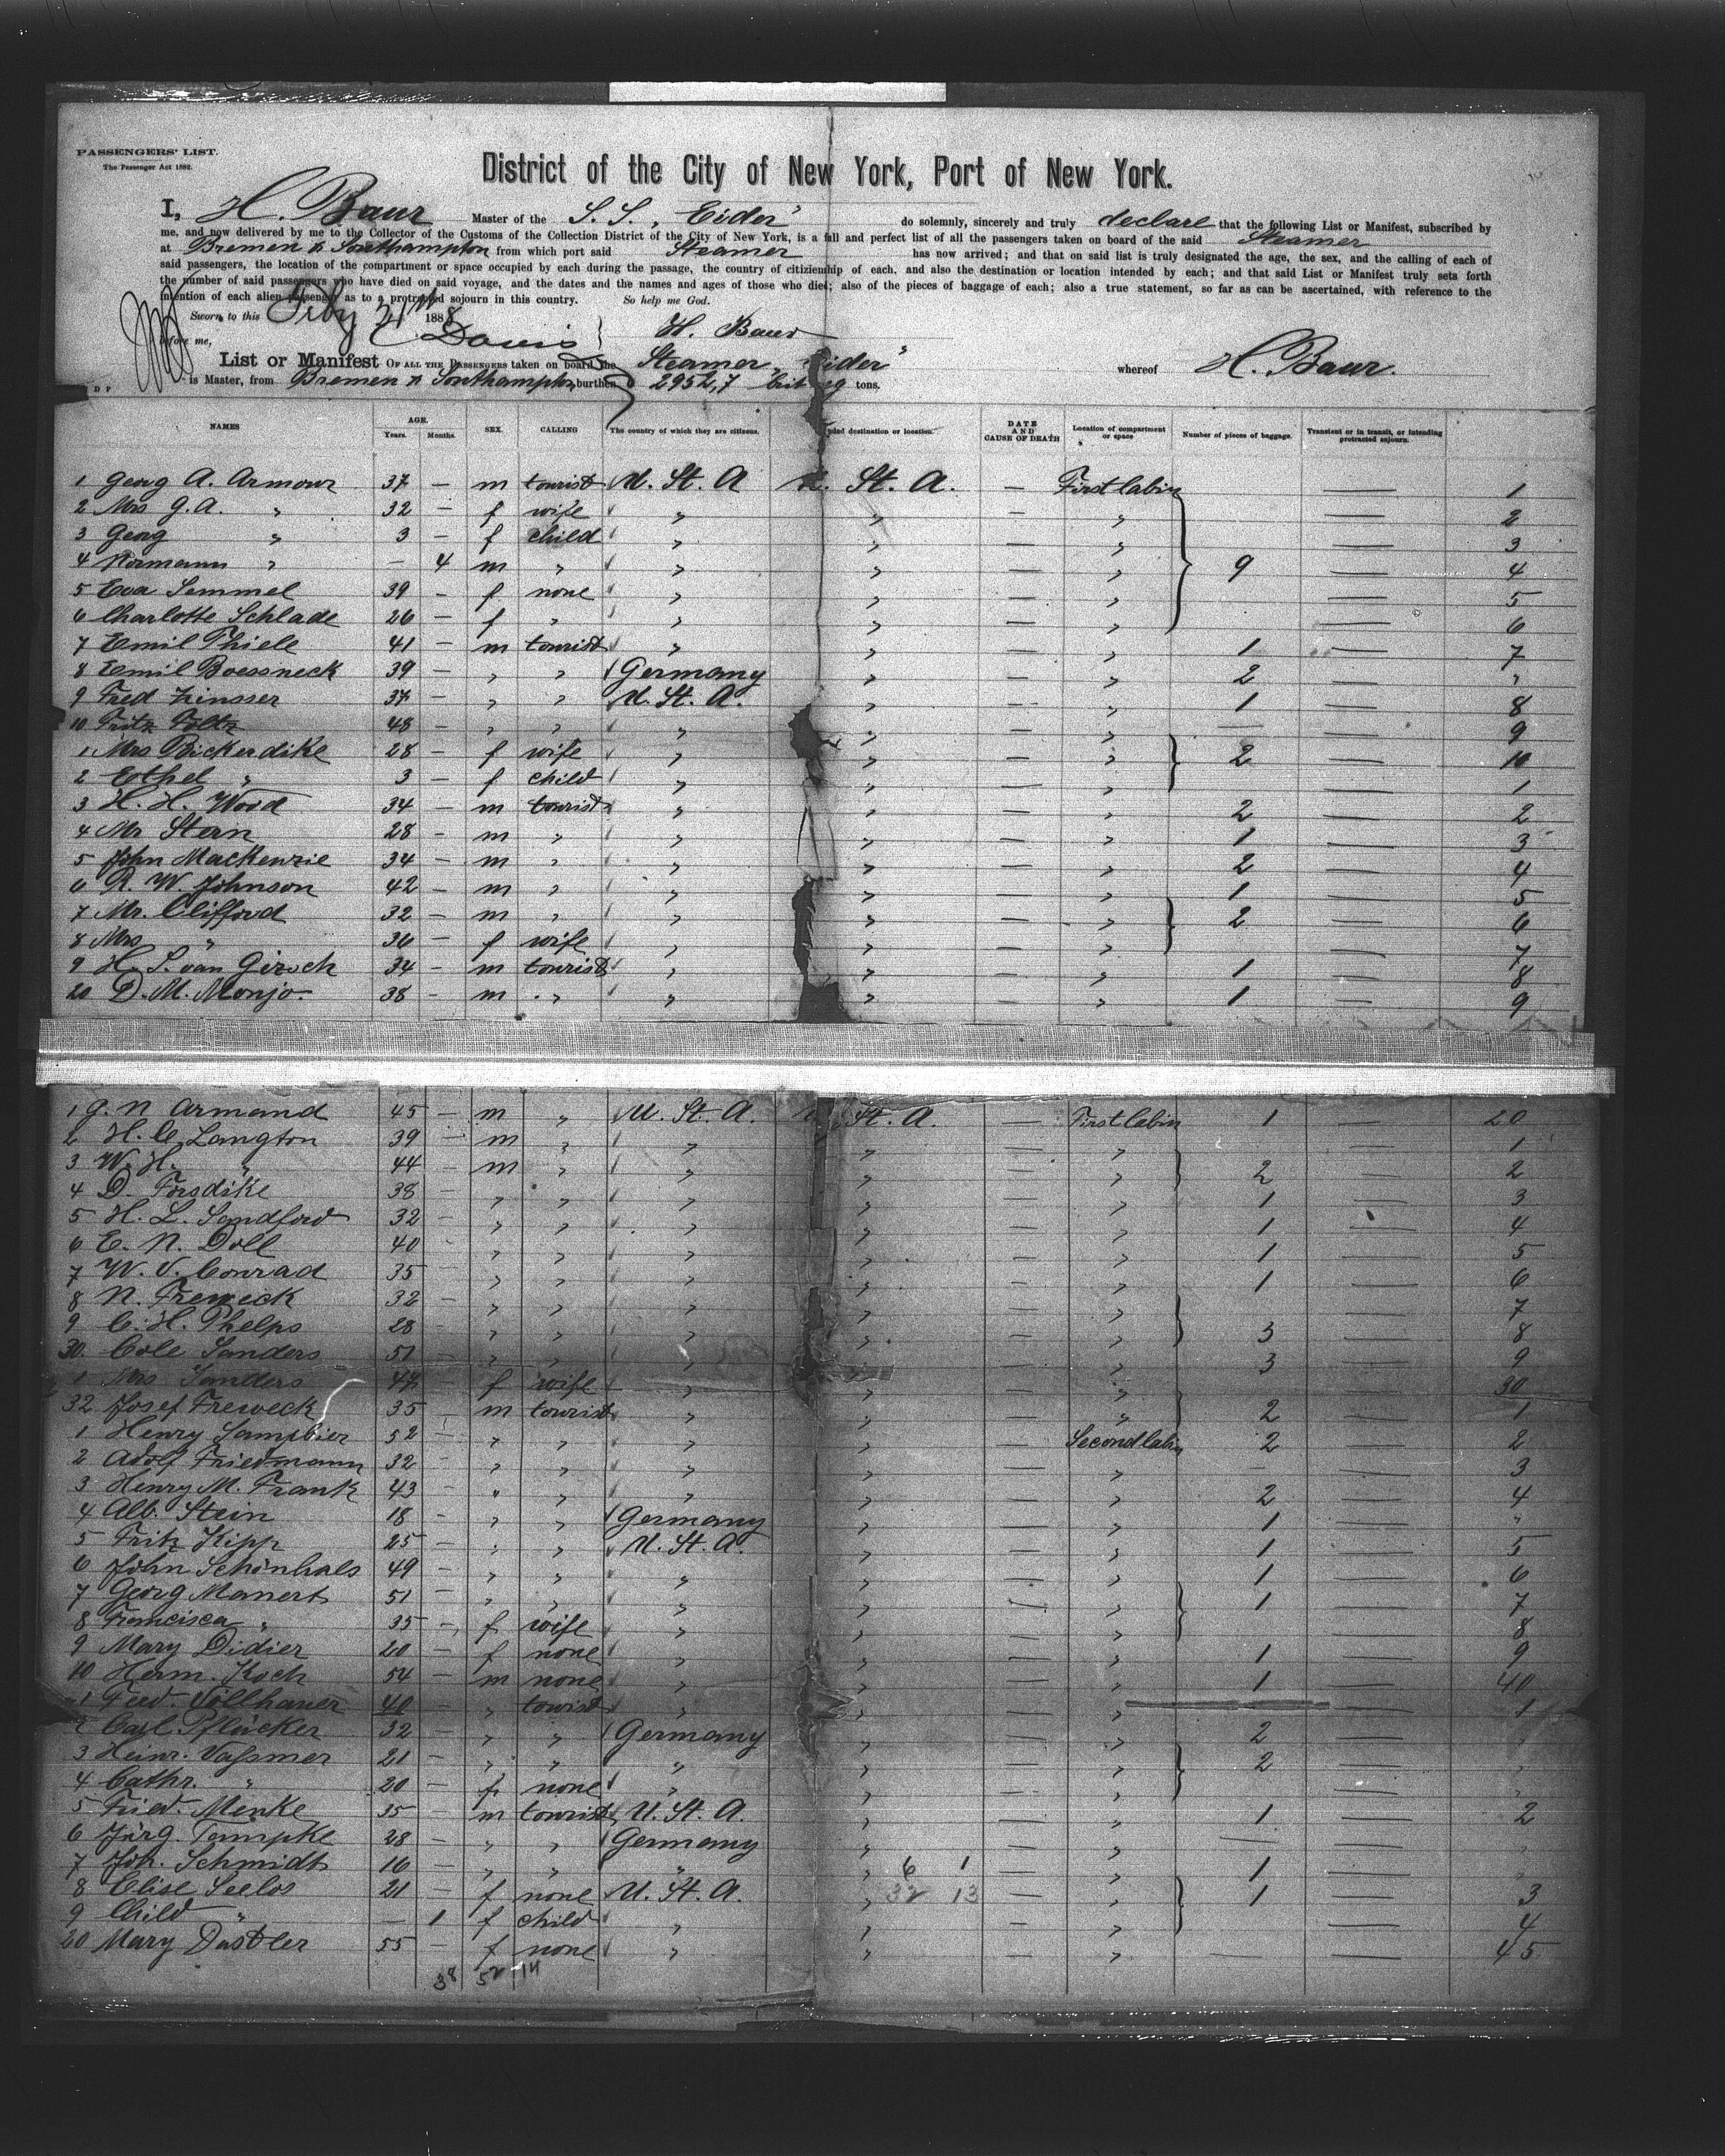 PASSENGERS' LIST.
The Passenger Act 1882.
District of the City of New York, Port of New York.
I, H. Baur Master of the S. S. „Eider" do solemnly, sincerely and truly declare that the following List or Manifest, subscribed by
me, and now delivered by me to the Collector of the Customs of the Collection District of the City of New York, is a full and perfect list of all the passengers taken on board of the said Steamer
at Bremen & Southampton from which port said Steamer has now arrived; and that on said list is truly designated the age, the sex, and the calling of each of
said passengers, the location of the compartment or space occupied by each during the passage, the country of citizienship of each, and also the destination or location intended by each; and that said List or Manifest truly sets forth
the number of said passengers who have died on said voyage, and the dates and the names and ages of those who died; also of the pieces of baggage of each; also a true statement, so far as can be ascertained, with reference to the
intention of each alien passenger as to a protracted sojourn in this country. So help me God.
Sworn to this Feby 21st 1888 H. Baur
before me, Davis
List or Manifest OF ALL THE PASSENGERS taken on board the Steamer „Eider" whereof H. Baur.
is Master, from Bremen & Southampton, burthen 2952,7 tons.
NAMES AGE. Years. Months. SEX. CALLING The country of which they are citizens. destination or location. DATE AND CAUSE OF DEATH Location of compartment or space Number of pieces of baggage. Transient or in transit, or intending protracted sojourn.
1 Georg A. Armour 37 — m tourist U. St. A U. St. A. — First Cabin — 1
2 Mrs G. A. „ 32 — f wife „ „ — „ — 2
3 Georg „ 3 — f child „ „ — „ — 3
4 Normann „ — 4 m „ „ „ — „ 9 — 4
5 Eva Semmel 39 — f none „ „ — „ — 5
6 Charlotte Schlade 26 — f „ „ „ — „ — 6
7 Emil Thiele 41 — m tourist „ „ — „ 1 — 7
8 Emil Boessneck 39 — „ „ Germany „ — „ 2 — „
9 Fred Zinsser 37 — „ „ U. St. A. „ — „ 1 — 8
10 Fritz Foltz 48 — „ „ „ „ — „ — — 9
1 Mrs Bickerdike 28 — f wife „ „ — „ 2 — 10
2 Eothel „ 3 — f child „ „ — „ — 1
3 H. H. Wood 34 — m tourist „ „ — „ 2 — 2
4 Mr Stern 28 — m „ „ „ — „ 1 — 3
5 John MacKenzie 34 — m „ „ „ — „ 2 — 4
6 R. W. Johnson 42 — m „ „ „ — „ 1 — 5
7 Mr. Clifford 32 — m „ „ „ — „ 2 — 6
8 Mrs „ 30 — f wife „ „ — „ — 7
9 H. S. van Girsch 34 — m tourist „ „ — „ 1 — 8
20 D. M. Monjo. 38 — m „ „ „ — „ 1 — 9
1 G. N Armand 45 — m „ U. St. A. U. St. A. — First Cabin 1 — 20
2 H. C. Langton 39 — m „ „ „ — „ — 1
3 W. H. „ 44 — m „ „ „ — „ 2 — 2
4 D. Forsdike 38 — „ „ „ „ — „ 1 — 3
5 H. L. Sandford 32 — „ „ „ „ — „ 1 — 4
6 E. N. Doll 40 — „ „ „ „ — „ 1 — 5
7 W. V. Conrad 35 — „ „ „ „ — „ 1 — 6
8 N. Freweck 32 — „ „ „ „ — „ — 7
9 C. H. Phelps 28 — „ „ „ „ — „ 3 — 8
30. Cole Sanders 51 — „ „ „ „ — „ 3 — 9
1 Mrs Sanders 47 — f wife „ „ — „ — 30
32 Josef Freweck 35 — m tourist „ „ — „ 2 — 1
1 Henry Sambier 52 — „ „ „ „ — Second Cabin 2 — 2
2 Adolf Friedmann 32 — „ „ „ „ — „ — — 3
3 Henry M. Frank 43 — „ „ „ „ — „ 2 — 4
4 Alb. Stein 18 — „ „ Germany „ — „ 1 — „
5 Fritz Kipp 25 — „ „ U. St. A. „ — „ 1 — 5
6 John Schönhals 49 — „ „ „ „ — „ 1 — 6
7 Georg Manert 51 — „ „ „ „ — „ 1 — 7
8 Francisca „ 35 — f wife „ „ — „ — 8
9 Mary Didier 20 — f none „ „ — „ 1 — 9
10 Herm. Koch 54 — m none „ „ — „ 1 — 40
1 Fred. Vollhauer 40 — „ tourist „ „ — „ — 1
2 Carl Pflücker 32 — „ „ Germany „ — „ 2 — „
3 Heinr. Vaßmer 21 — „ „ „ „ — „ 2 — „
4 Cathr. „ 20 — f none „ „ — „ — „
5 Fried. Menke 35 — m tourist U. St. A. „ — „ 1 — 2
6 Jürg. Tampke 28 — „ „ Germany „ — „ — — „
7 Joh. Schmidt 16 — „ „ „ „ 6 1 — „ 1 — „
8 Elise Seelos 21 — f none U. St. A. „ 32 13 — „ 1 — 3
9 Child „ — 1 f child „ „ — „ — 4
20 Mary Dastler 55 — f none „ „ — „ — — 45
38 52 14